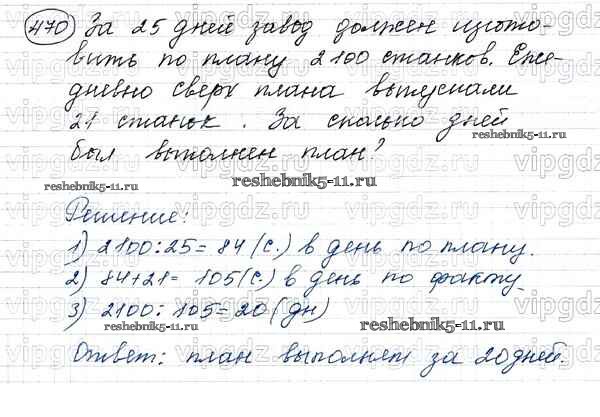 470 За 25 дней завод должен изгото-
вить по плану 2100 станков. Еже-
дневно сверх плана выпускали
21 станок. За сколько дней
был выполнен план?
reshebnik5-11.ru
reshebnik5-11.ru
reshebnik5-11.ru
Решение:
1) 2100:25= 84 (с.) в день по плану.
2) 84+21= 105(с.) в день по факту
3) 2100:105=20 (дн)
reshebnik5-11.ru
reshebnik5-11.ru
Ответ: план выполнен за 20 дней.
vipgdz.ru